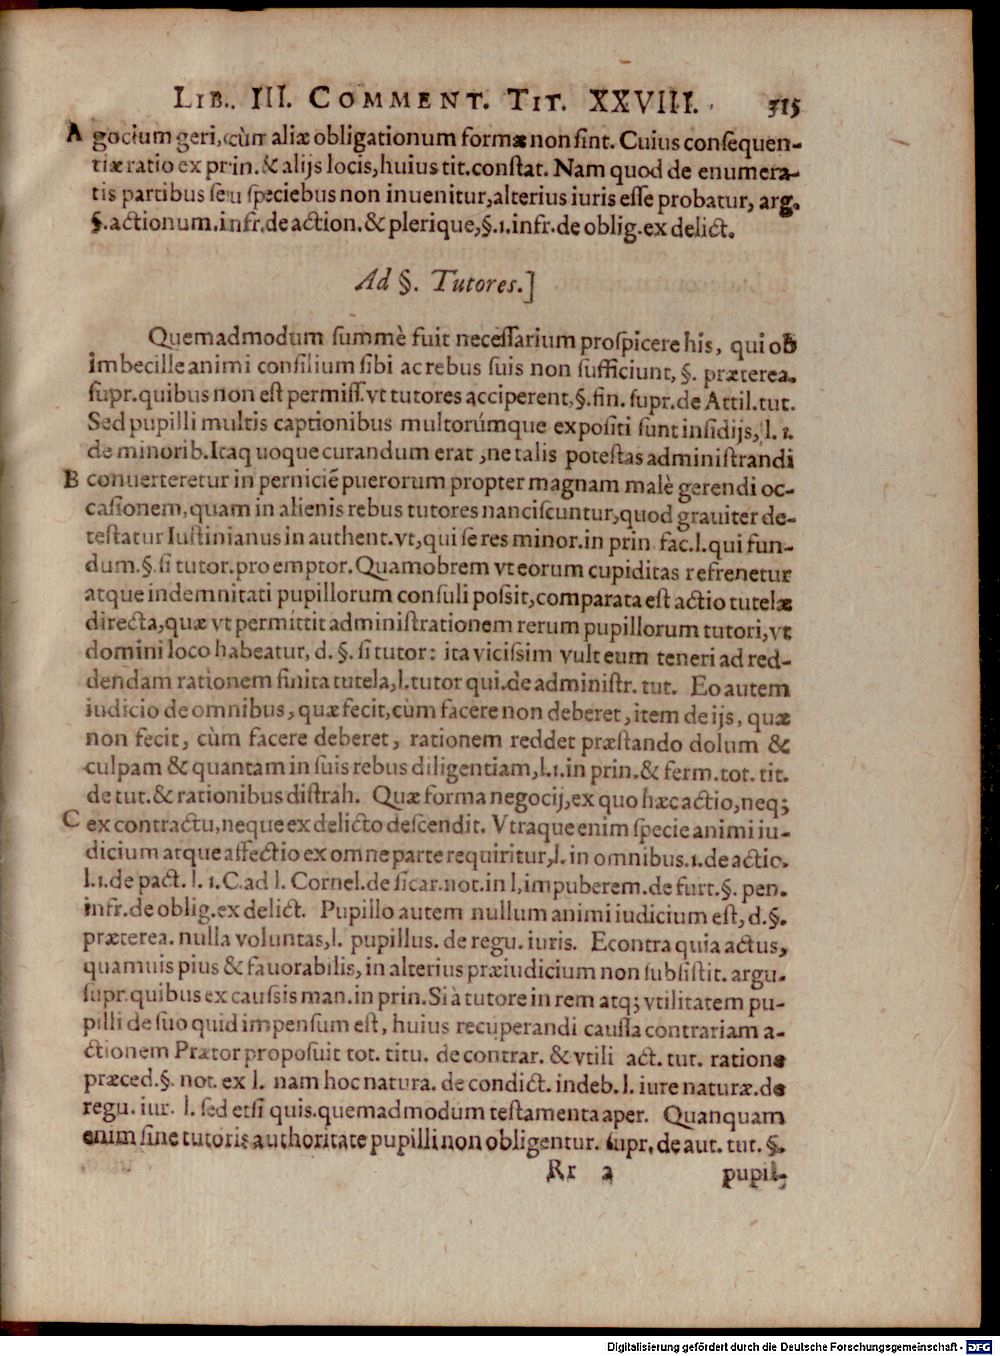 LIB. III. COMMENT. TIT. XXVIII. 315
A gocium geri, cùm aliæ obligationum formæ non sint. Cuius consequen-
tiæ ratio ex prin. & alijs locis, huius tit. constat. Nam quod de enumera-
tis partibus seu speciebus non inuenitur, alterius iuris esse probatur, arg.
§. actionum. infr. de action. & plerique, §. 1. infr. de oblig. ex delict.
Ad §. Tutores.]
Quemadmodum summè fuit necessarium prospicere his, qui ob
imbecille animi consilium sibi ac rebus suis non sufficiunt, §. præterea.
supr. quibus non est permiss. vt tutores acciperent, §. fin. supr. de Attil. tut.
Sed pupilli multis captionibus multorúmque expositi sunt insidijs, l. 1.
de minorib. Itaq uoque curandum erat, ne talis potestas administrandi
B conuerteretur in perniciẽ puerorum propter magnam malè gerendi oc-
casionem, quam in alienis rebus tutores nanciscuntur, quod grauiter de-
testatur Iustinianus in authent. vt, qui se res minor. in prin. fac. l. qui fun-
dum. §. si tutor. pro emptor. Quamobrem vt eorum cupiditas refrenetur
atque indemnitati pupillorum consuli possit, comparata est actio tutelæ
directa, quæ vt permittit administrationem rerum pupillorum tutori, vt
domini loco habeatur, d. §. si tutor: ita vicissim vult eum teneri ad red-
dendam rationem finita tutela, l. tutor qui. de administr. tut. Eo autem
iudicio de omnibus, quæ fecit, cùm facere non deberet, item de ijs, quæ
non fecit, cùm facere deberet, rationem reddet præstando dolum &
culpam & quantam in suis rebus diligentiam, l. 1. in prin. & ferm. tot. tit.
de tut. & rationibus distrah. Quæ forma negocij, ex quo hæc actio, neq;
C ex contractu, neque ex delicto descendit. Vtraque enim specie animi iu-
dicium atque affectio ex omne parte requiritur, l. in omnibus. 1. de actio.
l. 1. de pact. l. 1. C. ad l. Cornel. de sicar. not. in l, impuberem. de furt. §. pen.
infr. de oblig. ex delict. Pupillo autem nullum animi iudicium est, d. §.
præterea. nulla voluntas, l. pupillus. de regu. iuris. Econtra quia actus,
quamuis pius & fauorabilis, in alterius præiudicium non subsistit. argu.
supr. quibus ex caussis man. in prin. Si à tutore in rem atq; vtilitatem pu-
pilli de suo quid impensum est, huius recuperandi caussa contrariam a-
ctionem Prætor proposuit tot. titu. de contrar. & vtili act. tut. ratione
præced. §. not. ex l. nam hoc natura. de condict. indeb. l. iure naturæ. de
regu. iur. l. sed etsi quis. quemadmodum testamenta aper. Quanquam
enim sine tutoris authoritate pupilli non obligentur. supr. de aut. tut. §.
Rr 2 pupil-
Digitalisierung gefördert durch die Deutsche Forschungsgemeinschaft - DFG